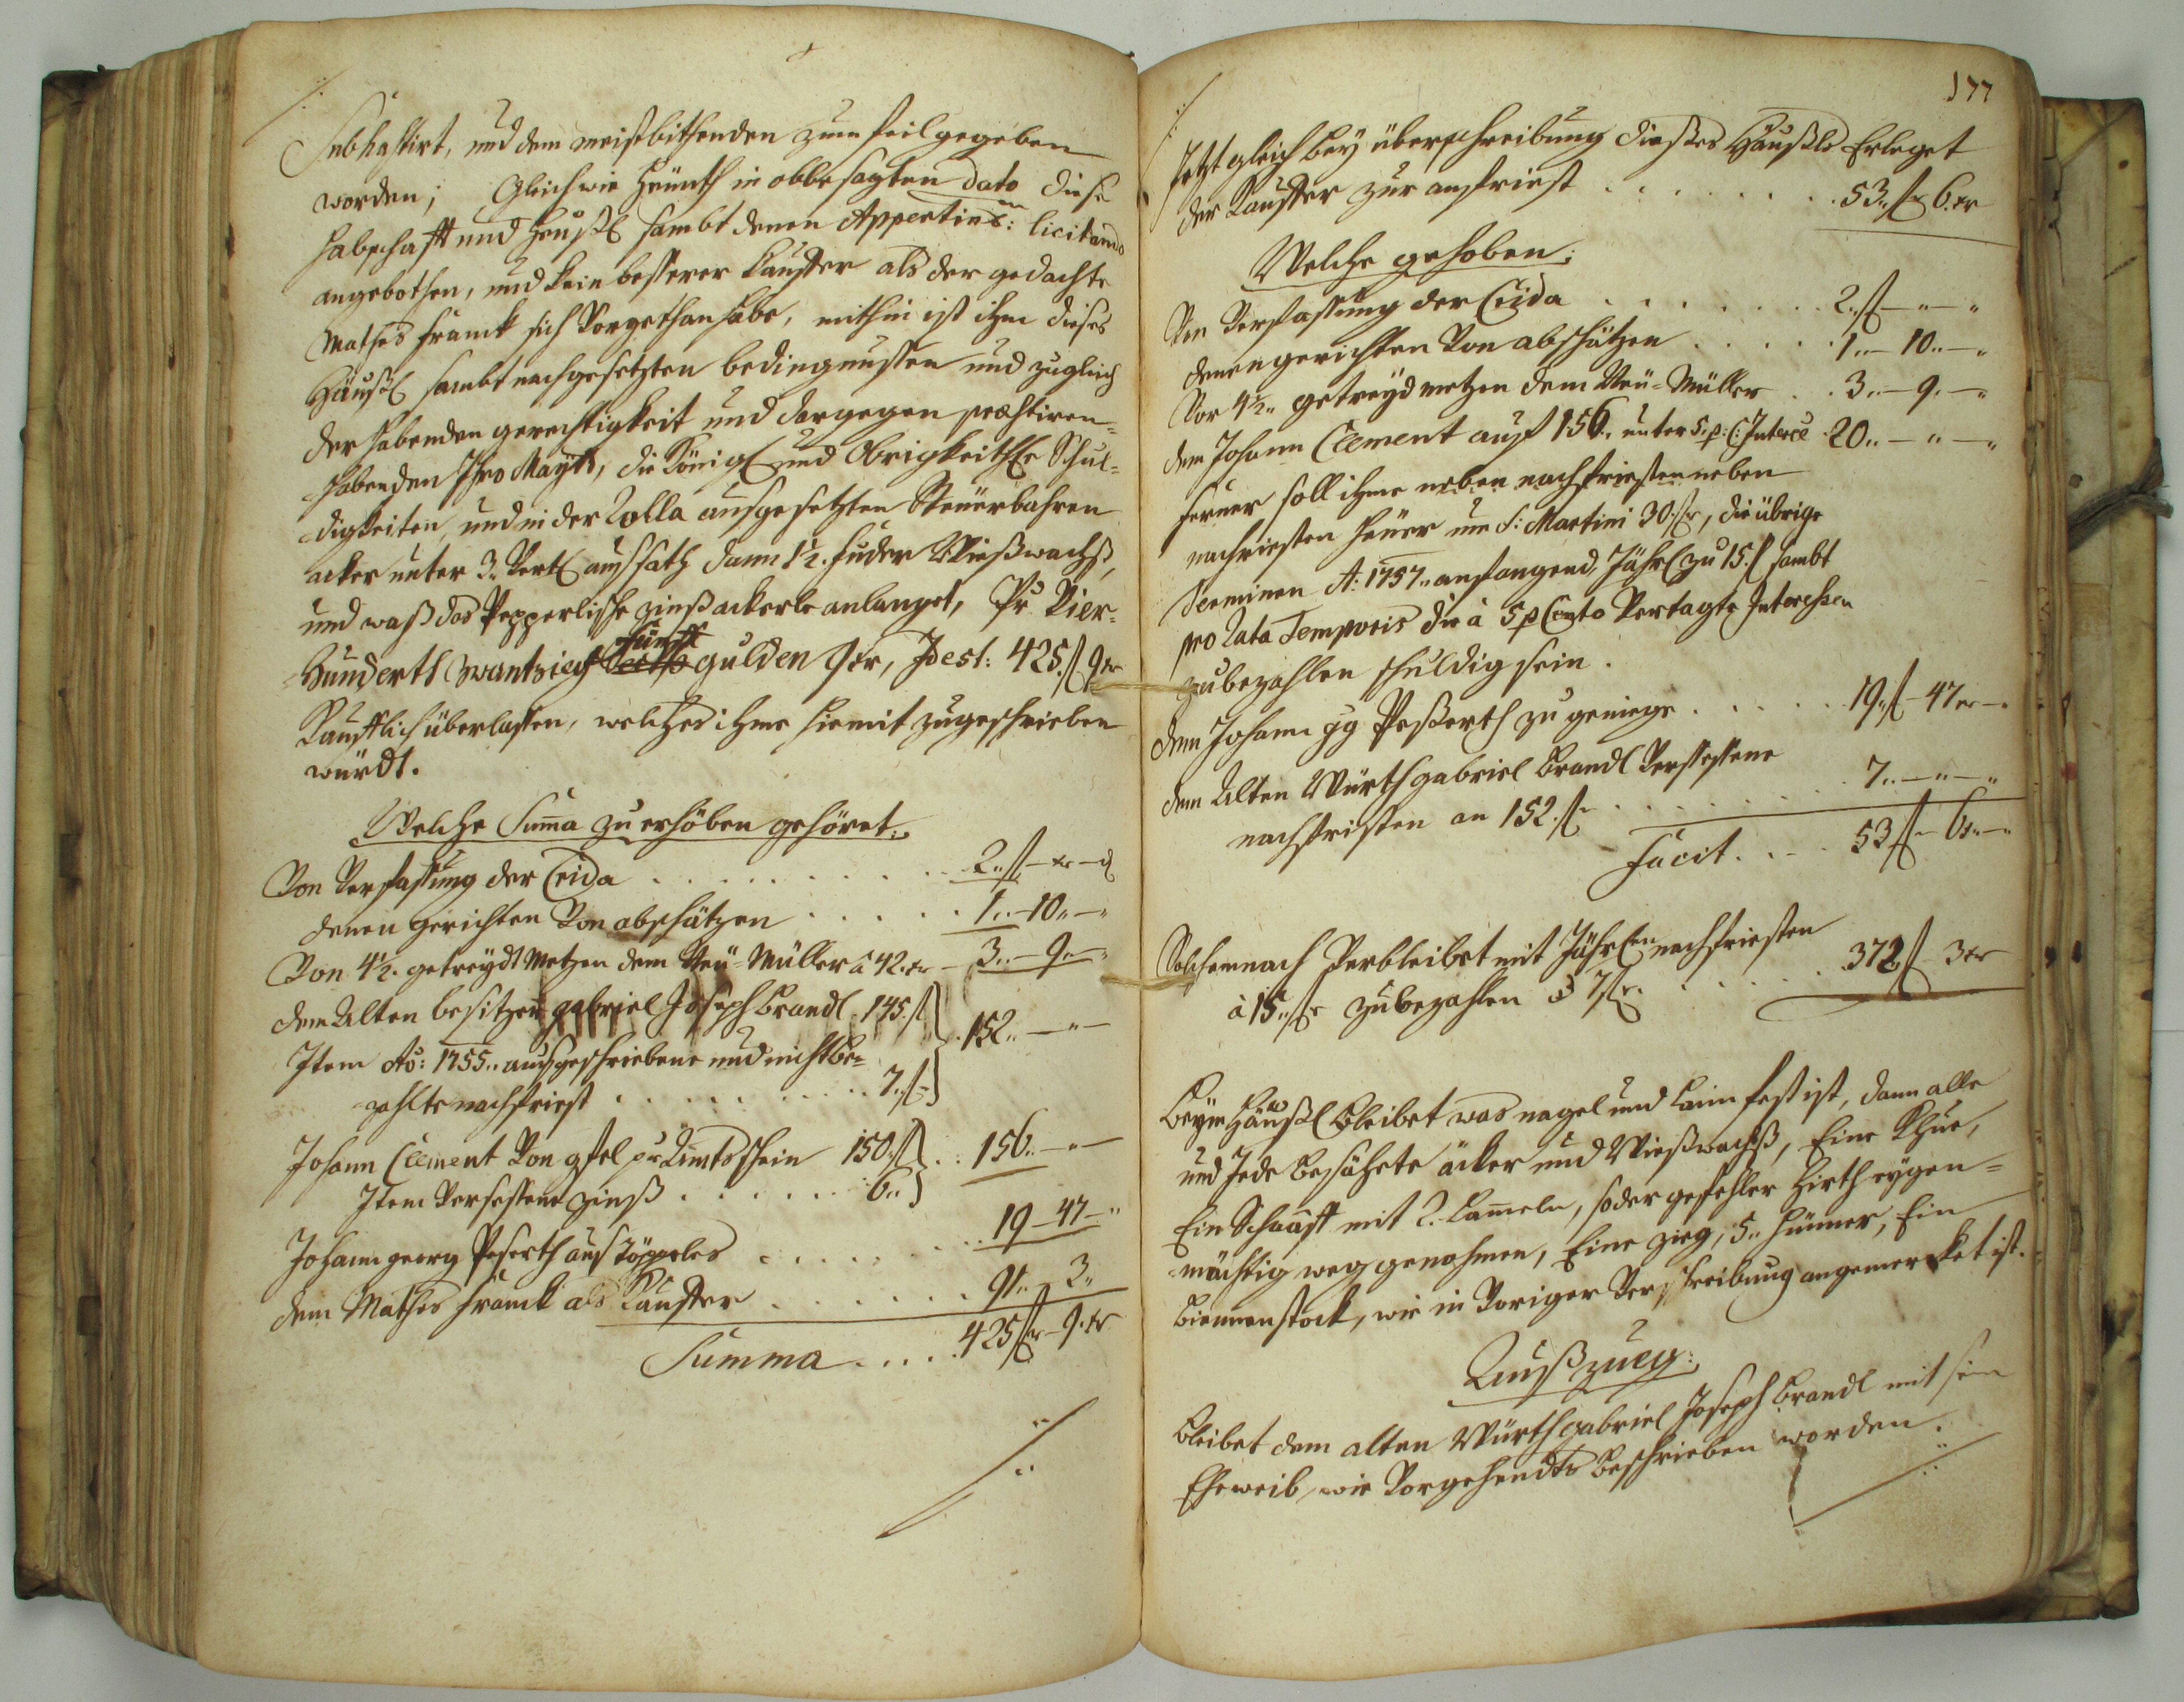 Subhastirt, und dem meistbithenden zum feil gegeben
worden; Gleichwie Heünth in obbesagten Dato diese
habschafft und Heüßl sambt denen Appertinen: licitando
angebothen, und kein besserer Kauffer als der gedachte
Mathes Franck sich Vorgethan habe, mithin ist ihm dieses
Häußl sambt nachgesetzten bedingnussen und zugleich
der habenden gerechtigkeit und dargegen præstiren-
habenden Ihro Mayts, die Königl und Obrigkeithle Schul-
digkeiten, und in der Rolla ausgesetzten Steüerbahren
acker unter 3. Vertl aussath dann 1½. fuder Wießwachß,
und waß das Pepperlische zinß ackerle anlanget, Pr Vier-
Hunderth Zwantzieg fünff gulden 9 xr, Idest: 425 f 9 xr
Kaufflich überlassen, welches ihme hiemit zugeschrieben
würdt.
Welche Suma zu erhöben gehöret:
Von Verfassung der Crida . . . . . . . . . . 2 f – xr – d
denen gerichten Von abschätzen . . . . . . 1 „ – 10 „ – „
Von 4½. getreydt Metzen dem Neü-Müller â 42. xr – 3 „ – 9 „ – „
dem Alten besitzer gabriel Joseph Brandl 145. f
Item Ao: 1755 „ ausgeschriebene und nicht be- 152 „ – „ –
zahlte nachfriest . . . . . . . . . 7 „ f
Johann Clement Von gfel pr Ambtsschein 150. f . . 156 „ – „ –
Item Versessene zinß . . . . . . 6 „
Johann georg Peserth aus Töppeles . . . . . . . . 19 – 47 – „
dem Mathes Franck als Kauffer . . . . . . 91 „ 3 „
Summa . . . . 425 f – 9. xr
177
Jetzt gleich bey überschreibung dieses Häußls Erleget
der Kauffer zur anfriest . . . . . . . . 53 „ f 6. xr
Welche gehoben:
Von Verfassung der Crida . . . . . . . 2 „ f – „ – „
denen gerichten Von abschätzen . . . . . 1 „ – 10 „ – „
Vor 4½ „ getreyd metzen dem Neü-Müller . . 3 „ – 9. – „
dem Johann Clement auf 156 „ unter 5. p: C: Interes . 20 „ – „ – „
ferner soll ihme neben nachfriesten neben
nachriesten heüer um S: Martini 30. f, die übrige
Terminen A: 1757 „ anfangend, Jährl zu 15. f sambt
pro Rata Temporis die à 5 p Cento Vertagte Interessen
zubezahlen schuldig sein.
dem Johann gg Peßerth zu gemege . . . . . . 19 „ f – 47 xr – „
dem Alten Würth gabriel Brandl Versessene
nachfristen an 152. f . . . . . . . . . 7 „ – „ – „
Facit . . . . 53 f – 6 „ – „
Solchemnach Verbleibet mit Jährlen nachfriesten
à 15 „ f zubezahlen à 7 f . . . . . . 372 f 3 xr
Beym Häußl Bleibet was nagel und Laim fest ist, dann alle
und Jede besährte äcker und Wießwachß, Eine Khue,
Ein Schaaff mit 2. Lameln, so der gfehler hirth eygen-
mächtig weggenohmen, Eine zieg, 5 „ hünner, Ein
biennenstock, wie in Voriger Verschreibung angemercket ist.
Außzueg:
Bleibet dem alten Würth gabriel Joseph Brandl mit sein
Eheweib, wie Vorgehendts beschrieben worden.